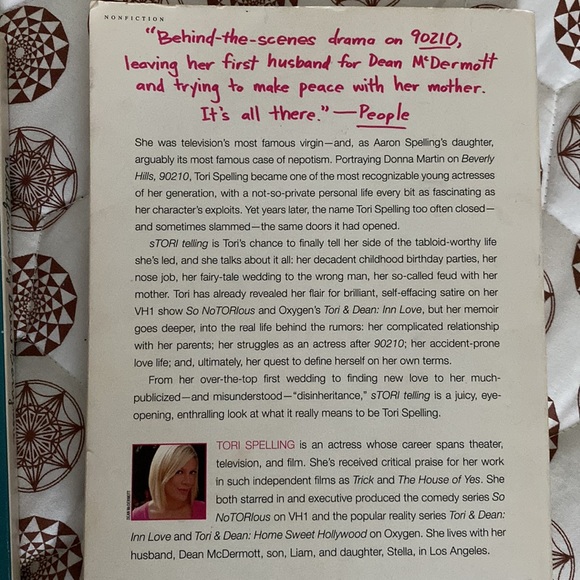 NONFICTION
"Behind-the-scenes drama on 90210,
leaving her first husband for Dean McDermott
and trying to make peace with her mother.
It's all there." —People
She was television's most famous virgin—and, as Aaron Spelling's daughter,
arguably its most famous case of nepotism. Portraying Donna Martin on Beverly
Hills, 90210, Tori Spelling became one of the most recognizable young actresses
of her generation, with a not-so-private personal life every bit as fascinating as
her character's exploits. Yet years later, the name Tori Spelling too often closed—
and sometimes slammed—the same doors it had opened.
sTORI telling is Tori's chance to finally tell her side of the tabloid-worthy life
she's led, and she talks about it all: her decadent childhood birthday parties, her
nose job, her fairy-tale wedding to the wrong man, her so-called feud with her
mother. Tori has already revealed her flair for brilliant, self-effacing satire on her
VH1 show So NoTORIous and Oxygen's Tori & Dean: Inn Love, but her memoir
goes deeper, into the real life behind the rumors: her complicated relationship
with her parents; her struggles as an actress after 90210; her accident-prone
love life; and, ultimately, her quest to define herself on her own terms.
From her over-the-top first wedding to finding new love to her much-
publicized—and misunderstood—"disinheritance," sTORI telling is a juicy, eye-
opening, enthralling look at what it really means to be Tori Spelling.
TORI SPELLING is an actress whose career spans theater,
television, and film. She's received critical praise for her work
in such independent films as Trick and The House of Yes. She
both starred in and executive produced the comedy series So
NoTORIous on VH1 and the popular reality series Tori & Dean:
Inn Love and Tori & Dean: Home Sweet Hollywood on Oxygen. She lives with her
husband, Dean McDermott, son, Liam, and daughter, Stella, in Los Angeles.
DEAN McDERMOTT